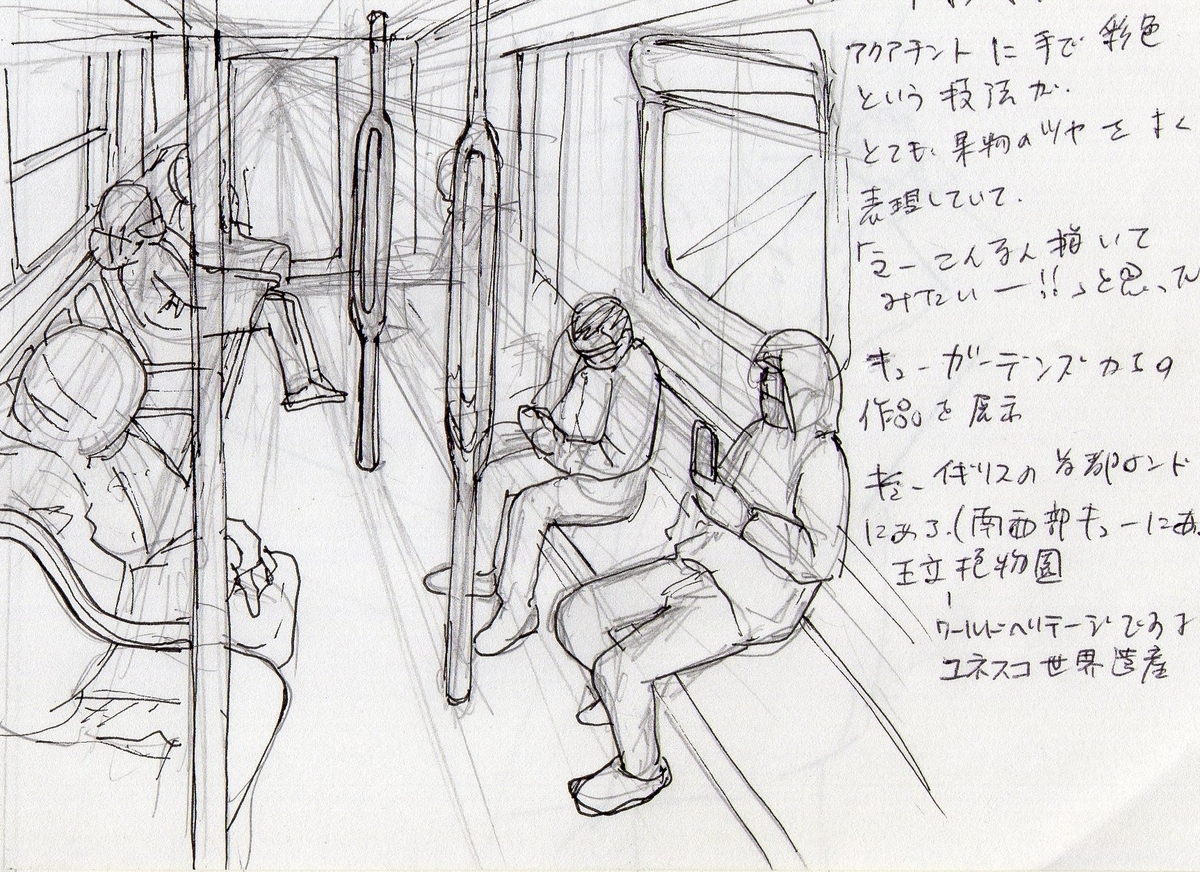 アクアチント に 手で 彩色
という 技法 が、
とても 果物のツヤ を すく
表現していて、
「うー こんなん 描いて
みたい ー!!」と思った
キューガーデンズからの
作品を 展示
キュー イギリスの 首都ロンド
にある。(南西部 キューにあ
王立 植物園
ワールドヘリテージである
ユネスコ 世界遺産